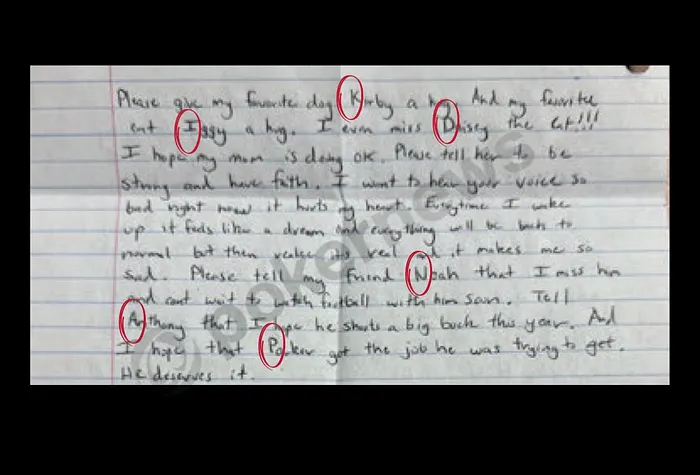 Please give my favorite dog Kirby a hug And my favorite
cat Iggy a hug. I even miss Daisey the cat!!!
I hope my mom is doing ok. Please tell her to be
strong and have faith. I want to hear your voice so
bad right now it hurts my heart. Everytime I wake
up it feels like a dream and everything will be back to
normal but then realize its real and it makes me so
sad. Please tell my friend Noah that I miss him
and cant wait to watch football with him soon. Tell
Anthony that I hope he shoots a big buck this year. And
I hope that Parker got the job he was trying to get.
He deserves it.
pokernews